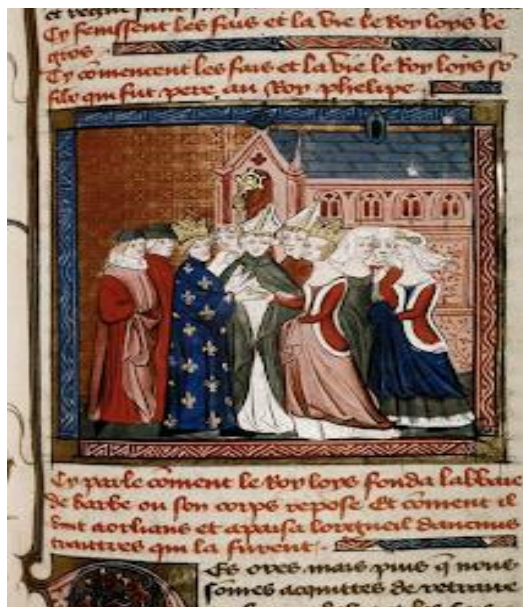 Cy fenissent les fais et la vie le Roy loys le
gros
Cy comencent les fais et la vie le Roy loys so
filz qui fut pere au Roy phelipe
Cy parle coment le Roy loys fonda labbaie
de barbe ou son corps repose Et coment il
vint aorlians et apaisa lorgueil daucuns
traittres qui la furent
Es ores mais puis q nous
somes acquittes de retraire